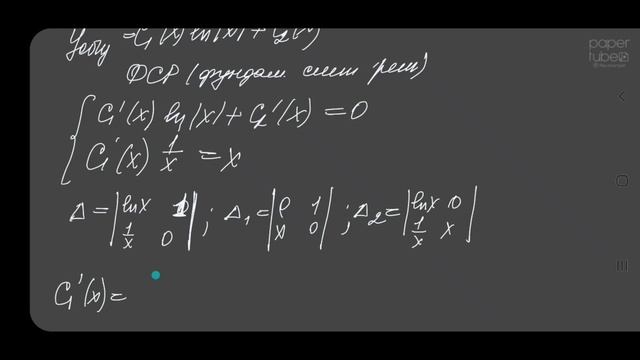 Yобщ = C₁(x) ln|x| + C₂(x)
ФСР (фундам. систем реш)
C₁'(x) ln|x| + C₂'(x) = 0
C₁'(x) 1/x = x
Δ = |lnx 1; 1/x 0|; Δ₁ = |0 1; x 0|; Δ₂ = |lnx 0; 1/x x|
C₁'(x) =
paper
tube